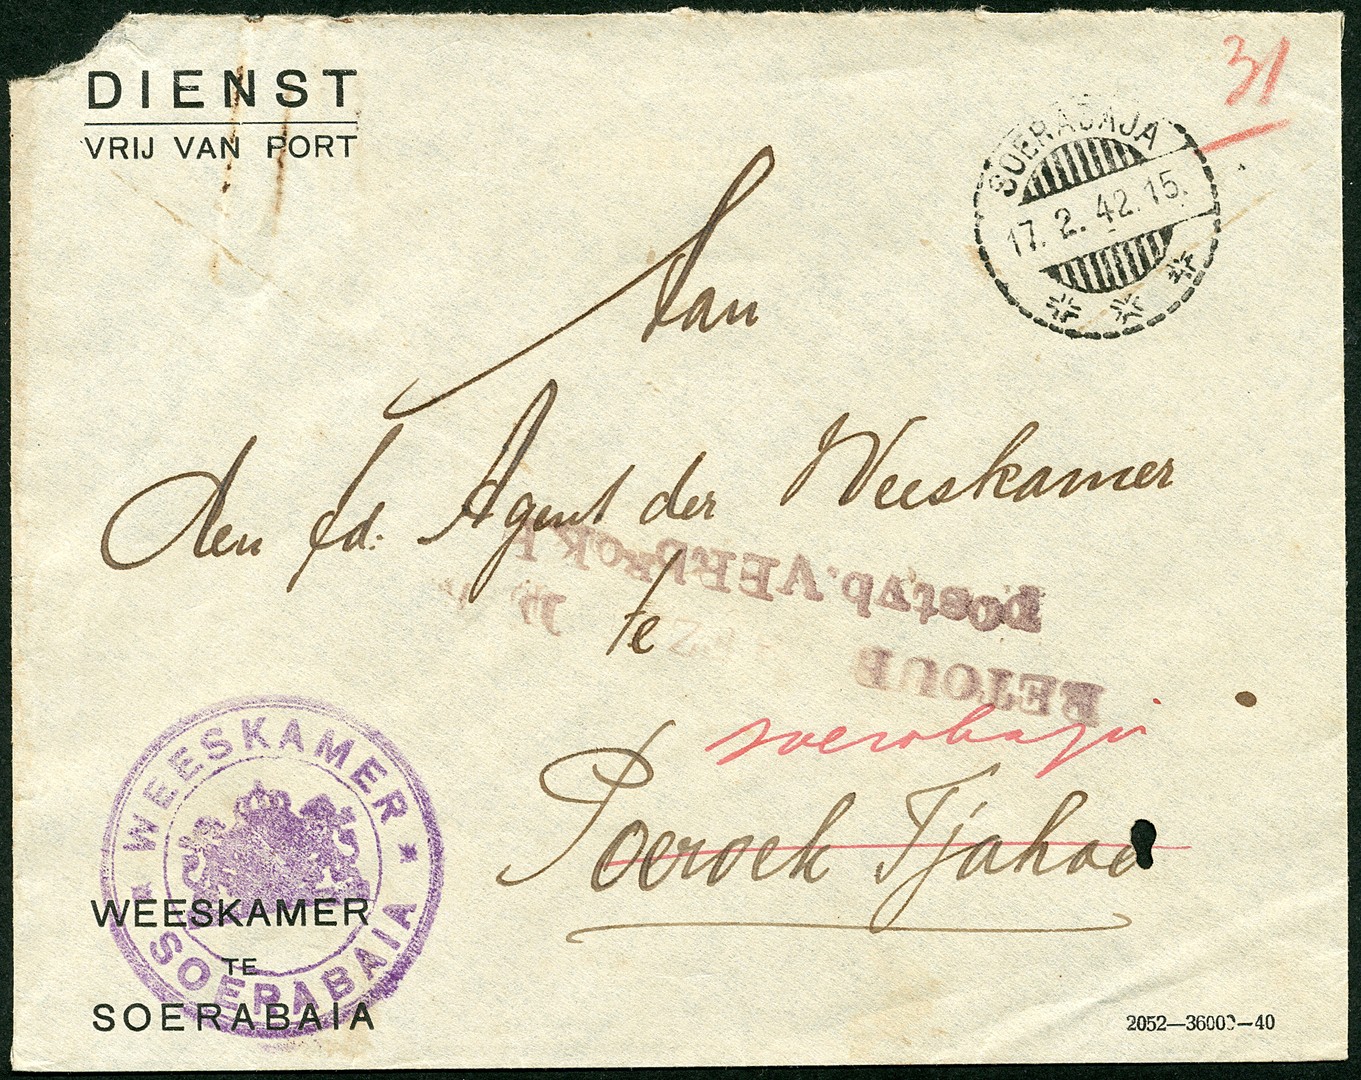 DIENST
VRIJ VAN PORT
31
SOERABAJA
17. 2. 42.15.
Aan
den fd. Agent der Weeskamer
te
Postvb. VERBROKEN
RETOUR
soerabaja
Poeroek Tjahoe
WEESKAMER
SOERABAIA
WEESKAMER
TE
SOERABAIA
2052—36000—40